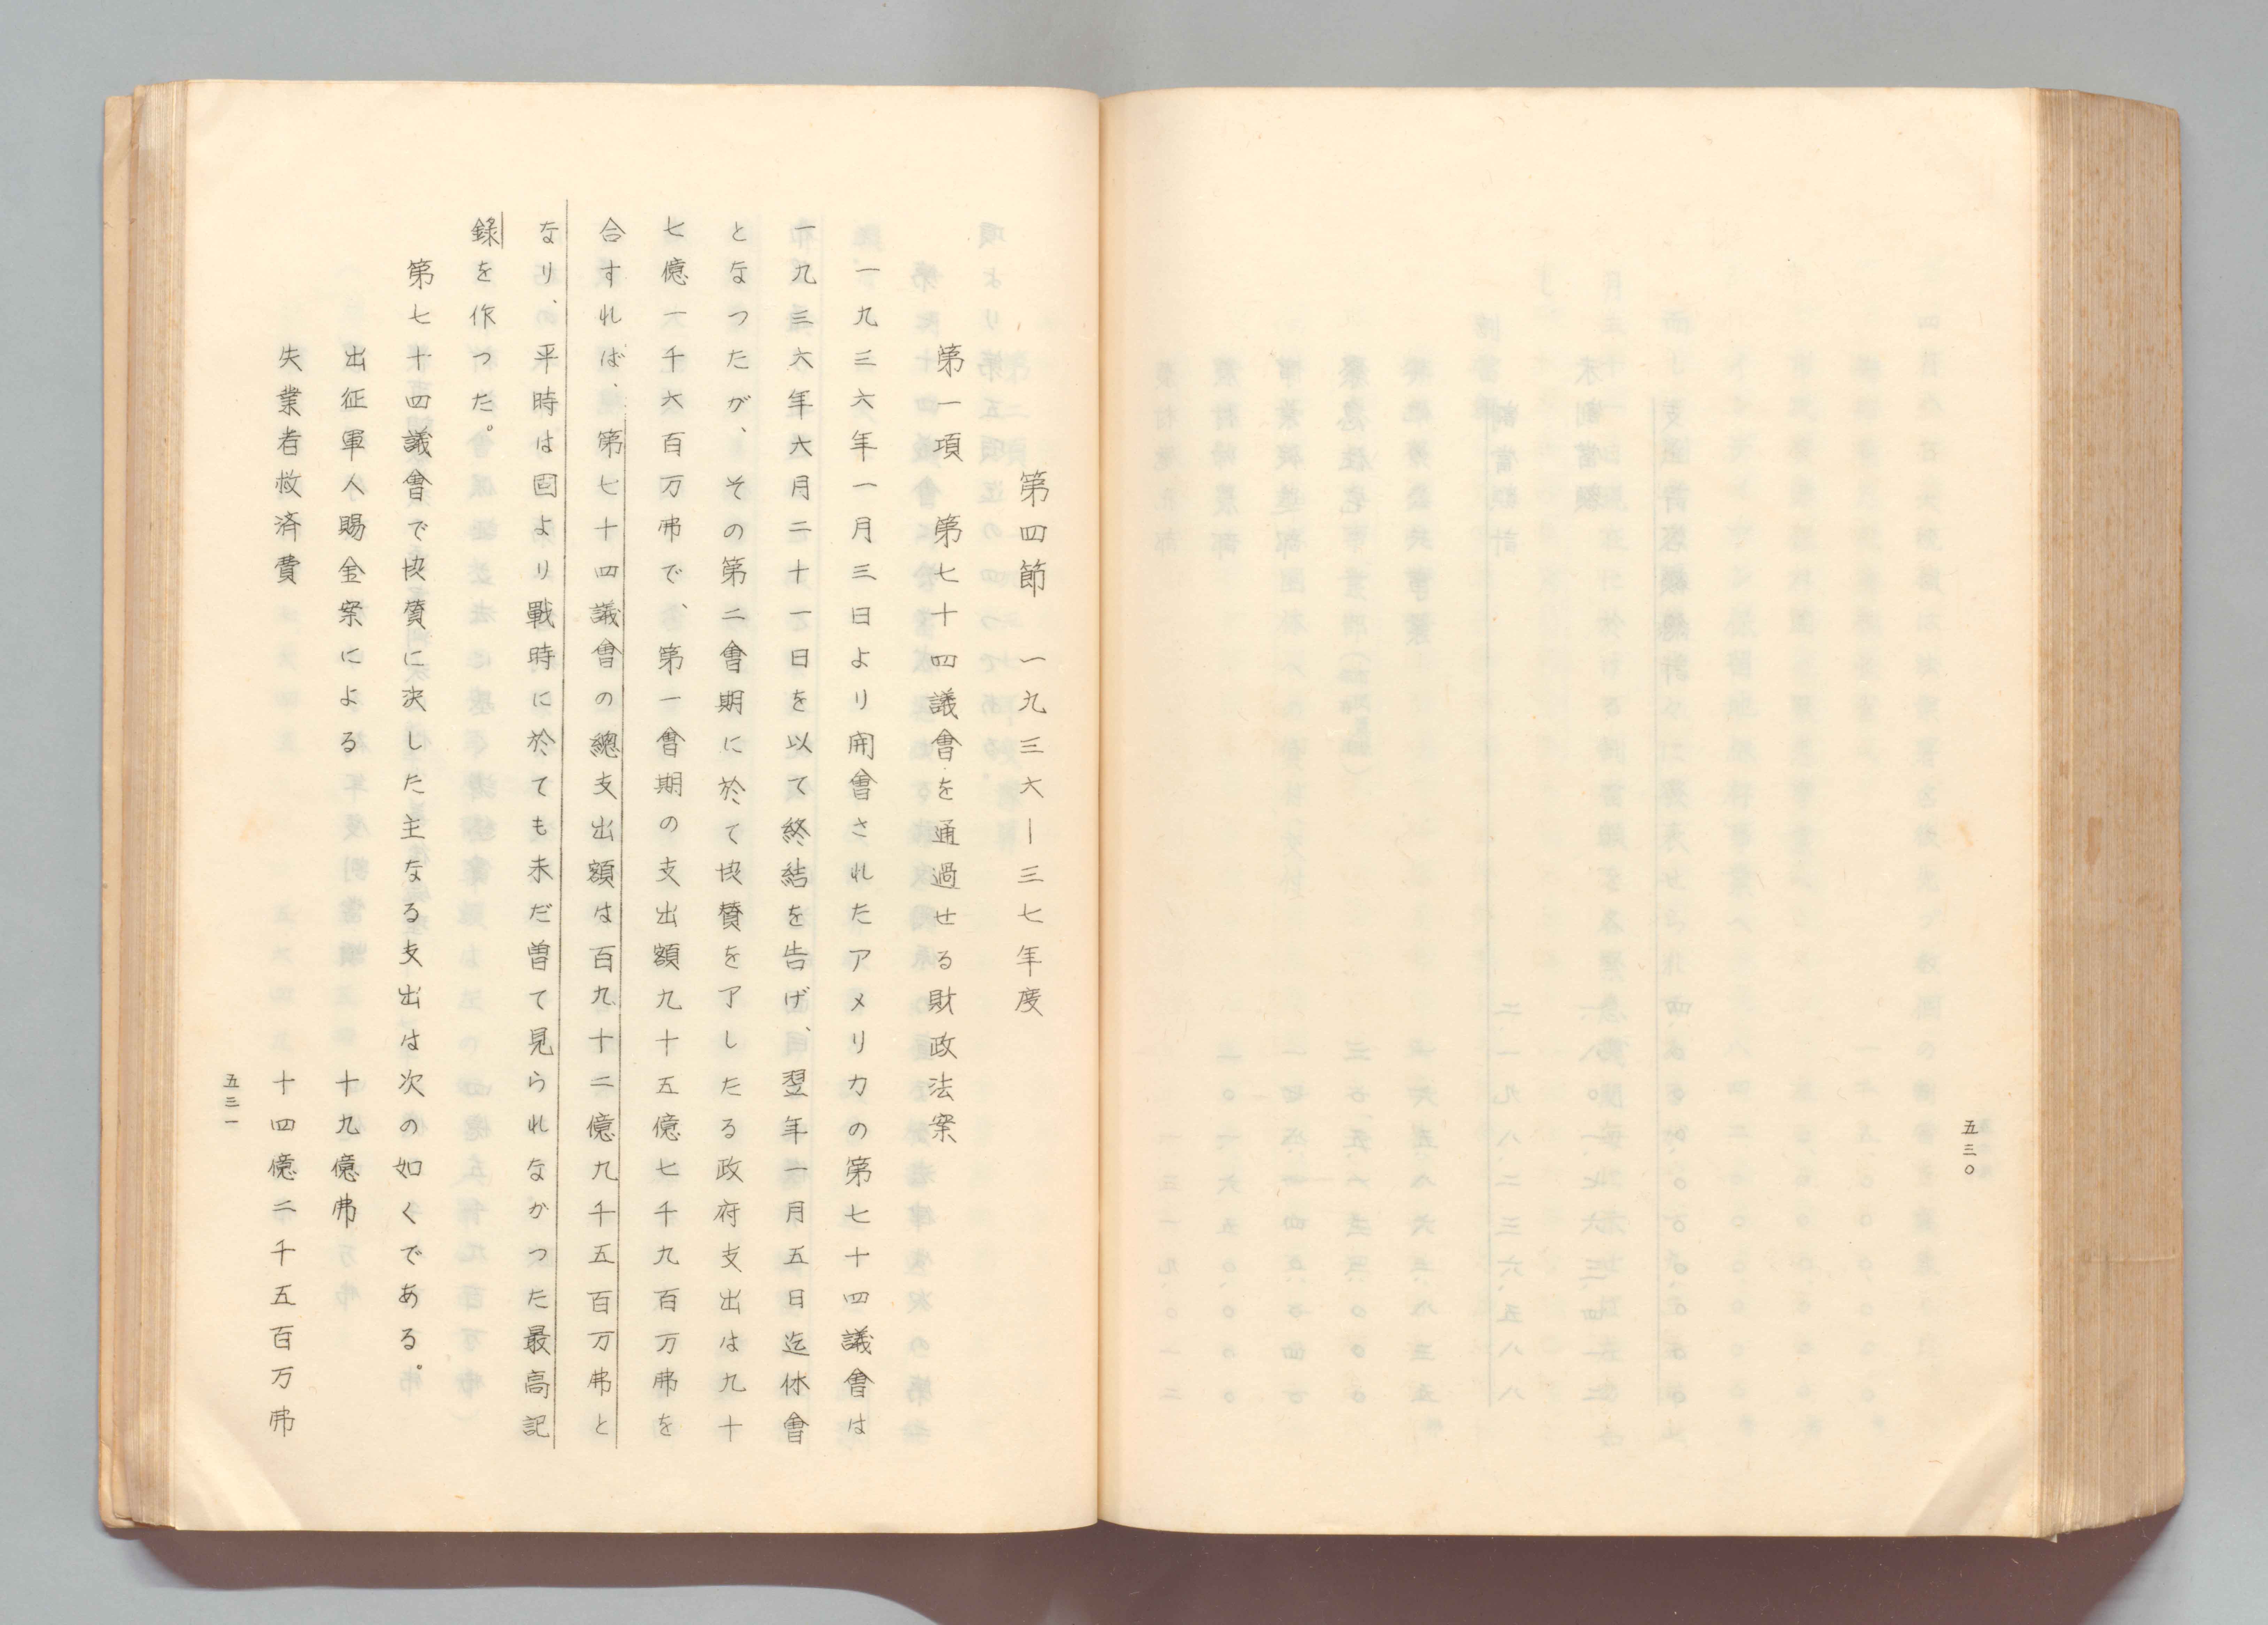 五三〇
第四節 一九三六―三七年度
第一項 第七十四議會を通過せる財政法案
一九三六年一月三日より開會されたアメリカの第七十四議會は
一九三六年六月二十一日を以て終結を告げ、翌年一月五日迄休會
となつたが、その第二會期に於て協賛を了したる政府支出は九十
七億一千六百万弗で、第一會期の支出額九十五億七千九百万弗を
合すれば、第七十四議會の總支出額は百九十二億九千五百万弗と
なり、平時は固より戰時に於ても未だ曽て見られなかつた最高記
録を作つた。
第七十四議會で協賛に決した主なる支出は次の如くである。
出征軍人賜金案による 十九億弗
失業者救済費 十四億二千五百万弗
五三一